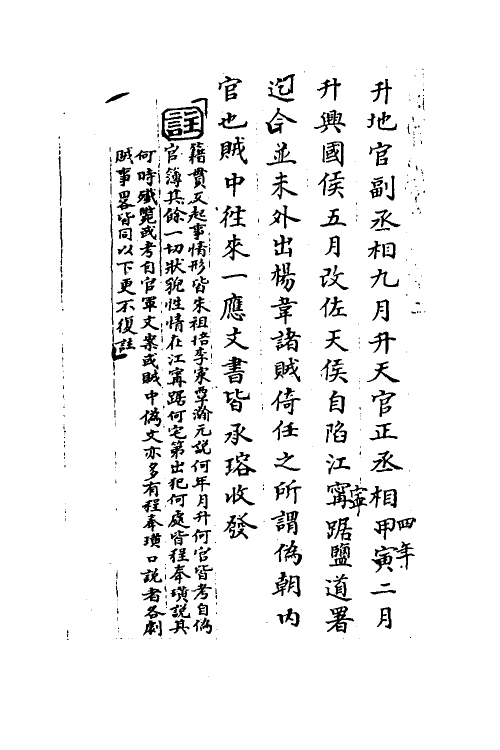 升地官副丞相九月升天官正丞相甲寅二月
四年
升興國侯五月改佐天侯自陷江寗踞鹽道署
寧
迄今並未外出楊韋諸賊倚任之所謂偽朝内
官也賊中徃來一應文書皆承瑢收發
註
籍貫及起事情形皆朱祖培李家覃瀚元説何年月升何官皆考自偽
官簿其餘一切狀貌性情在江寗踞何宅第出犯何處皆程奉璜説其
何時殲斃或考自官軍文案或賊中偽文亦多有程奉璜口説者各劇
賊事畧皆同以下更不復註